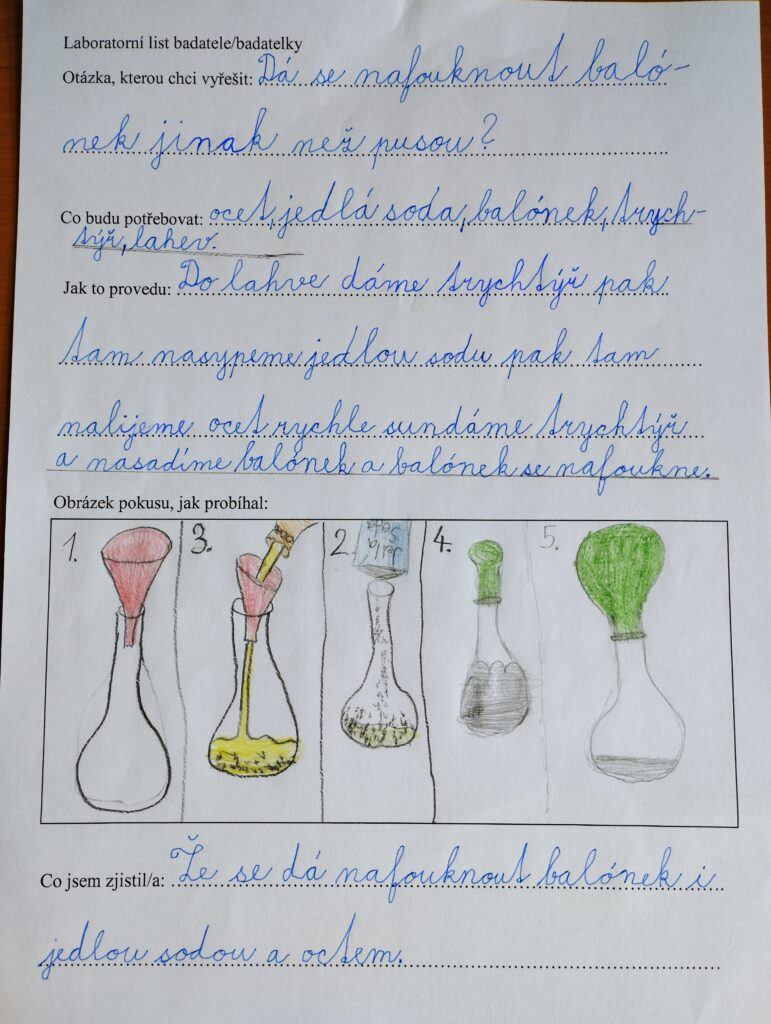 Laboratorní list badatele/badatelky
Otázka, kterou chci vyřešit: Dá se nafouknout baló-
nek jinak než pusou?
Co budu potřebovat: ocet, jedlá soda, balónek, trych-
týř, lahev.
Jak to provedu: Do lahve dáme trychtýř pak
tam nasypeme jedlou sodu pak tam
nalijeme ocet rychle sundáme trychtýř
a nasadíme balónek a balónek se nafoukne.
Obrázek pokusu, jak probíhal:
1. 3. 2. 4. 5.
Soda
Co jsem zjistil/a: Že se dá nafouknout balónek i
jedlou sodou a octem.